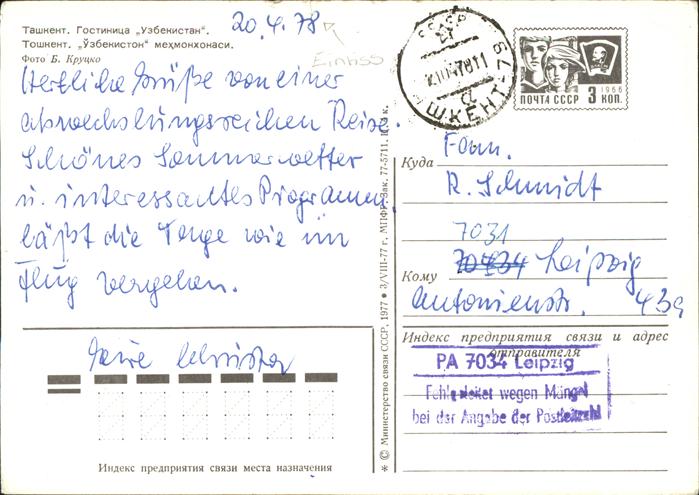 Ташкент. Гостиница „Узбекистан".
Тошкент. „Ўзбекистон" меҳмонхонаси.
Фото Б. Круцко
20.4.78
Herzliche Grüße von einer
abwechslungsreichen Reise.
Schönes Sommerwetter
u. interessantes Programm
läßt die Tage wie im
Flug vergehen.
Индекс предприятия связи места назначения
* © Министерство связи СССР, 1977 • 3/VIII-77 г., МПФГ. Зак. 77-5711. Ц. 4 к.
СССР
ШКЕНТ-78
ПОЧТА СССР 3 КОП.
1966
Куда
Fam.
R. Schmidt
7031
Кому
70434 Leipzig
Antonienstr. 43a
Индекс предприятия связи и адрес
отправителя
PA 7034 Leipzig
Fehlgeleitet wegen Mängel
bei der Angabe der Postleitzahl